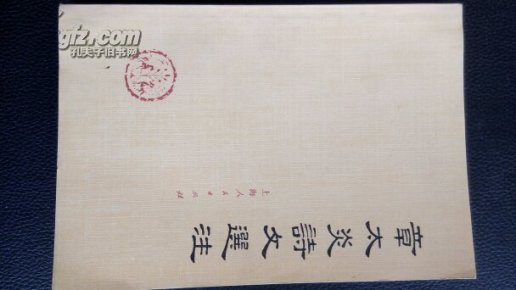 章太炎詩文選注
上海人民出版社
gfz.com
孔夫子旧书网